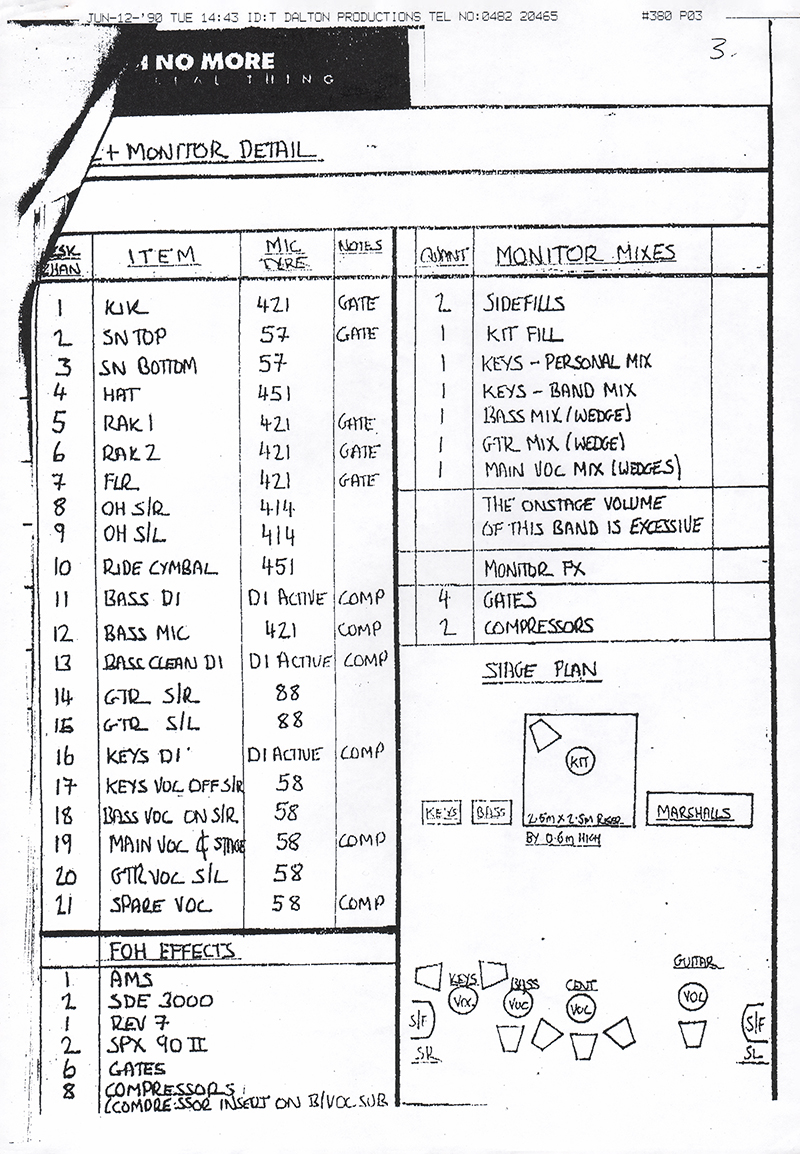 JUN-12-'90 TUE 14:43 ID:T DALTON PRODUCTIONS TEL NO:0482 20465 #380 P03
3.
NO MORE
EAL THING
+ MONITOR DETAIL
SK CHAN ITEM MIC TYPE NOTES
1 KIK 421 GATE
2 SN TOP 57 GATE
3 SN BOTTOM 57
4 HAT 451
5 RAK 1 421 GATE
6 RAK 2 421 GATE
7 FLR 421 GATE
8 OH S/R 414
9 OH S/L 414
10 RIDE CYMBAL 451
11 BASS DI DI ACTIVE COMP
12 BASS MIC 421 COMP
13 BASS CLEAN DI DI ACTIVE COMP
14 GTR S/R 88
15 GTR S/L 88
16 KEYS DI DI ACTIVE COMP
17 KEYS VOC OFF S/R 58
18 BASS VOC ON S/R 58
19 MAIN VOC ¢ STAGE 58 COMP
20 GTR VOC S/L 58
21 SPARE VOC 58 COMP
FOH EFFECTS
1 AMS
2 SDE 3000
1 REV 7
2 SPX 90 II
6 GATES
8 COMPRESSORS
(COMPRESSOR INSERT ON B/VOC SUB
QUANT MONITOR MIXES
2 SIDEFILLS
1 KIT FILL
1 KEYS - PERSONAL MIX
1 KEYS - BAND MIX
1 BASS MIX (WEDGE)
1 GTR MIX (WEDGE)
1 MAIN VOC MIX (WEDGES)
THE ONSTAGE VOLUME
OF THIS BAND IS EXCESSIVE
MONITOR FX
4 GATES
2 COMPRESSORS
STAGE PLAN
KIT
KEYS BASS 2.5m X 2.5m RISER MARSHALLS
BY 0.6m HIGH
KEYS BASS CENT GUITAR
VOC VOC VOC VOC
S/F S/F
SR SL